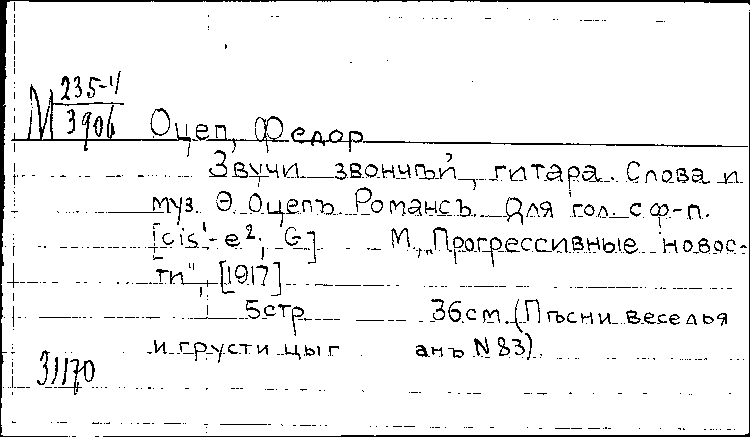 М 235-4/3906
Оцеп, Федор
Звучи звончѣй, гитара. Слова и
муз. Ѳ. Оцепъ Романсъ. Для гол. с ф-п.
[cis¹-e²; G] М., „Прогрессивные новос-
ти", [1917]
5стр 36см. (Пѣсни веселья
и грусти цыг анъ N 83).
31170